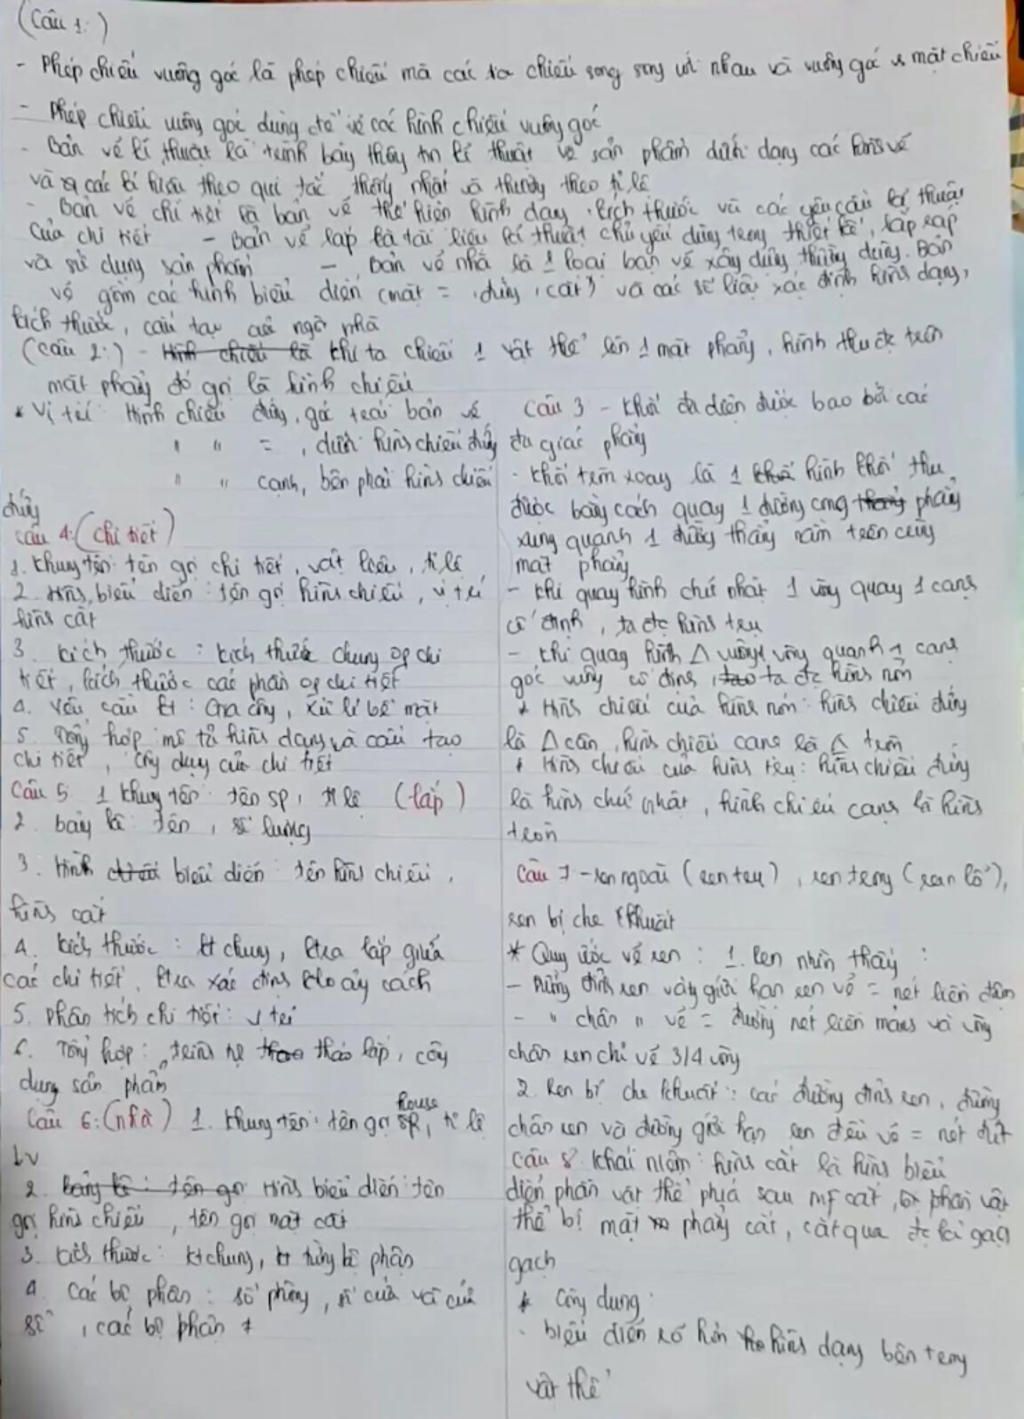 (Câu 1:)
- Phép chiếu vuông góc là phép chiếu mà các tia chiếu song song với nhau và vuông góc vs mặt chiếu
- Phép chiếu vuông góc dùng để vẽ các hình chiếu vuông góc
- Bản vẽ kĩ thuật là trình bày thông tin kĩ thuật về sản phẩm dưới dạng các hình vẽ
và các kí hiệu theo qui tắc thống nhất và thường theo tỉ lệ
- Bản vẽ chi tiết là bản vẽ thể hiện hình dạng, kích thước và các yêu cầu kĩ thuật
của chi tiết - Bản vẽ lắp là tài liệu kĩ thuật chủ yếu dùng trong thiết kế, lắp ráp
và sử dụng sản phẩm - Bản vẽ nhà là 1 loại bản vẽ xây dựng thường dùng. Bản
vẽ gồm các hình biểu diễn (mặt =, đứng, cắt) và các số liệu xác định hình dạng,
kích thước, cấu tạo của ngôi nhà
(Câu 2:) - Hình chiếu là khi ta chiếu 1 vật thể lên 1 mặt phẳng, hình thu đc trên
mặt phẳng đó gọi là hình chiếu
* Vị trí: Hình chiếu đứng, góc trái bản vẽ
" " =, dưới hình chiếu đứng
" " cạnh, bên phải hình chiếu
đứng
Câu 4:(chi tiết)
1. Khung tên: tên gọi chi tiết, vật liệu, tỉ lệ
2. Hình biểu diễn: tên gọi hình chiếu, vị trí
hình cắt
3. Kích thước: kích thước chung of chi
tiết, kích thước các phần of chi tiết
4. Yêu cầu kt: Gia công, xử lí bề mặt
5. Tổng hợp: mô tả hình dạng và cấu tạo
chi tiết, công dụng của chi tiết
Câu 5 1 Khung tên: tên sp, tỉ lệ (lắp)
2. bảng kê: tên, số lượng
3. Hình chiếu biểu diễn: tên hình chiếu,
hình cắt
4. Kích thước: kt chung, kt lắp giữa
các chi tiết, xác định khoảng cách
5. Phân tích chi tiết: vị trí
6. Tổng hợp: trình tự tháo lắp, công
dụng sản phẩm
Câu 6:(nhà) 1. Khung tên: tên gọi sp, house tỉ lệ
bv
2. Bảng kê: tên gọi Hình biểu diễn: tên
gọi hình chiếu, tên gọi mặt cắt
3. Kích thước: kt chung, kt từng bộ phận
4. Các bộ phận: số phòng, số cửa và cửa
sổ, các bộ phận ≠
Câu 3 - Khối đa diện được bao bởi các
đa giác phẳng
- Khối tròn xoay là 1 khối hình khối thu
được bằng cách quay 1 đường cong thẳng phẳng
xung quanh 1 đường thẳng nằm trên cùng
mặt phẳng
- Khi quay hình chữ nhật 1 vòng quay 1 cạnh
cố định, ta đc hình trụ
- Khi quay hình Δ vuông vòng quanh 1 cạnh
góc vuông cố định, tạo ta đc hình nón
* Hình chiếu của hình nón: hình chiếu đứng
là Δ cân, hình chiếu cạnh là tròn
* Hình chiếu của hình trụ: hình chiếu đứng
là hình chữ nhật, hình chiếu cạnh là hình
tròn
Câu 7 - ren ngoài (ren trục), ren trong (ren lỗ),
ren bị che khuất
* Quy ước vẽ ren: 1. Ren nhìn thấy:
- Đường đỉnh ren và giới hạn ren vẽ = nét liền đậm
- " chân " vẽ = đường nét liền mảnh và vòng
chân ren chỉ vẽ 3/4 vòng
2. Ren bị che khuất: các đường đỉnh ren, đường
chân ren và đường giới hạn ren đều vẽ = nét đứt
Câu 8. Khái niệm: hình cắt là hình biểu
diễn phần vật thể phía sau mp cắt, phần vật
thể bị mặt phẳng cắt, cắt qua đc kẻ gạch
gạch
* Công dụng
- biểu diễn rõ hơn hình dạng bên trong
vật thể